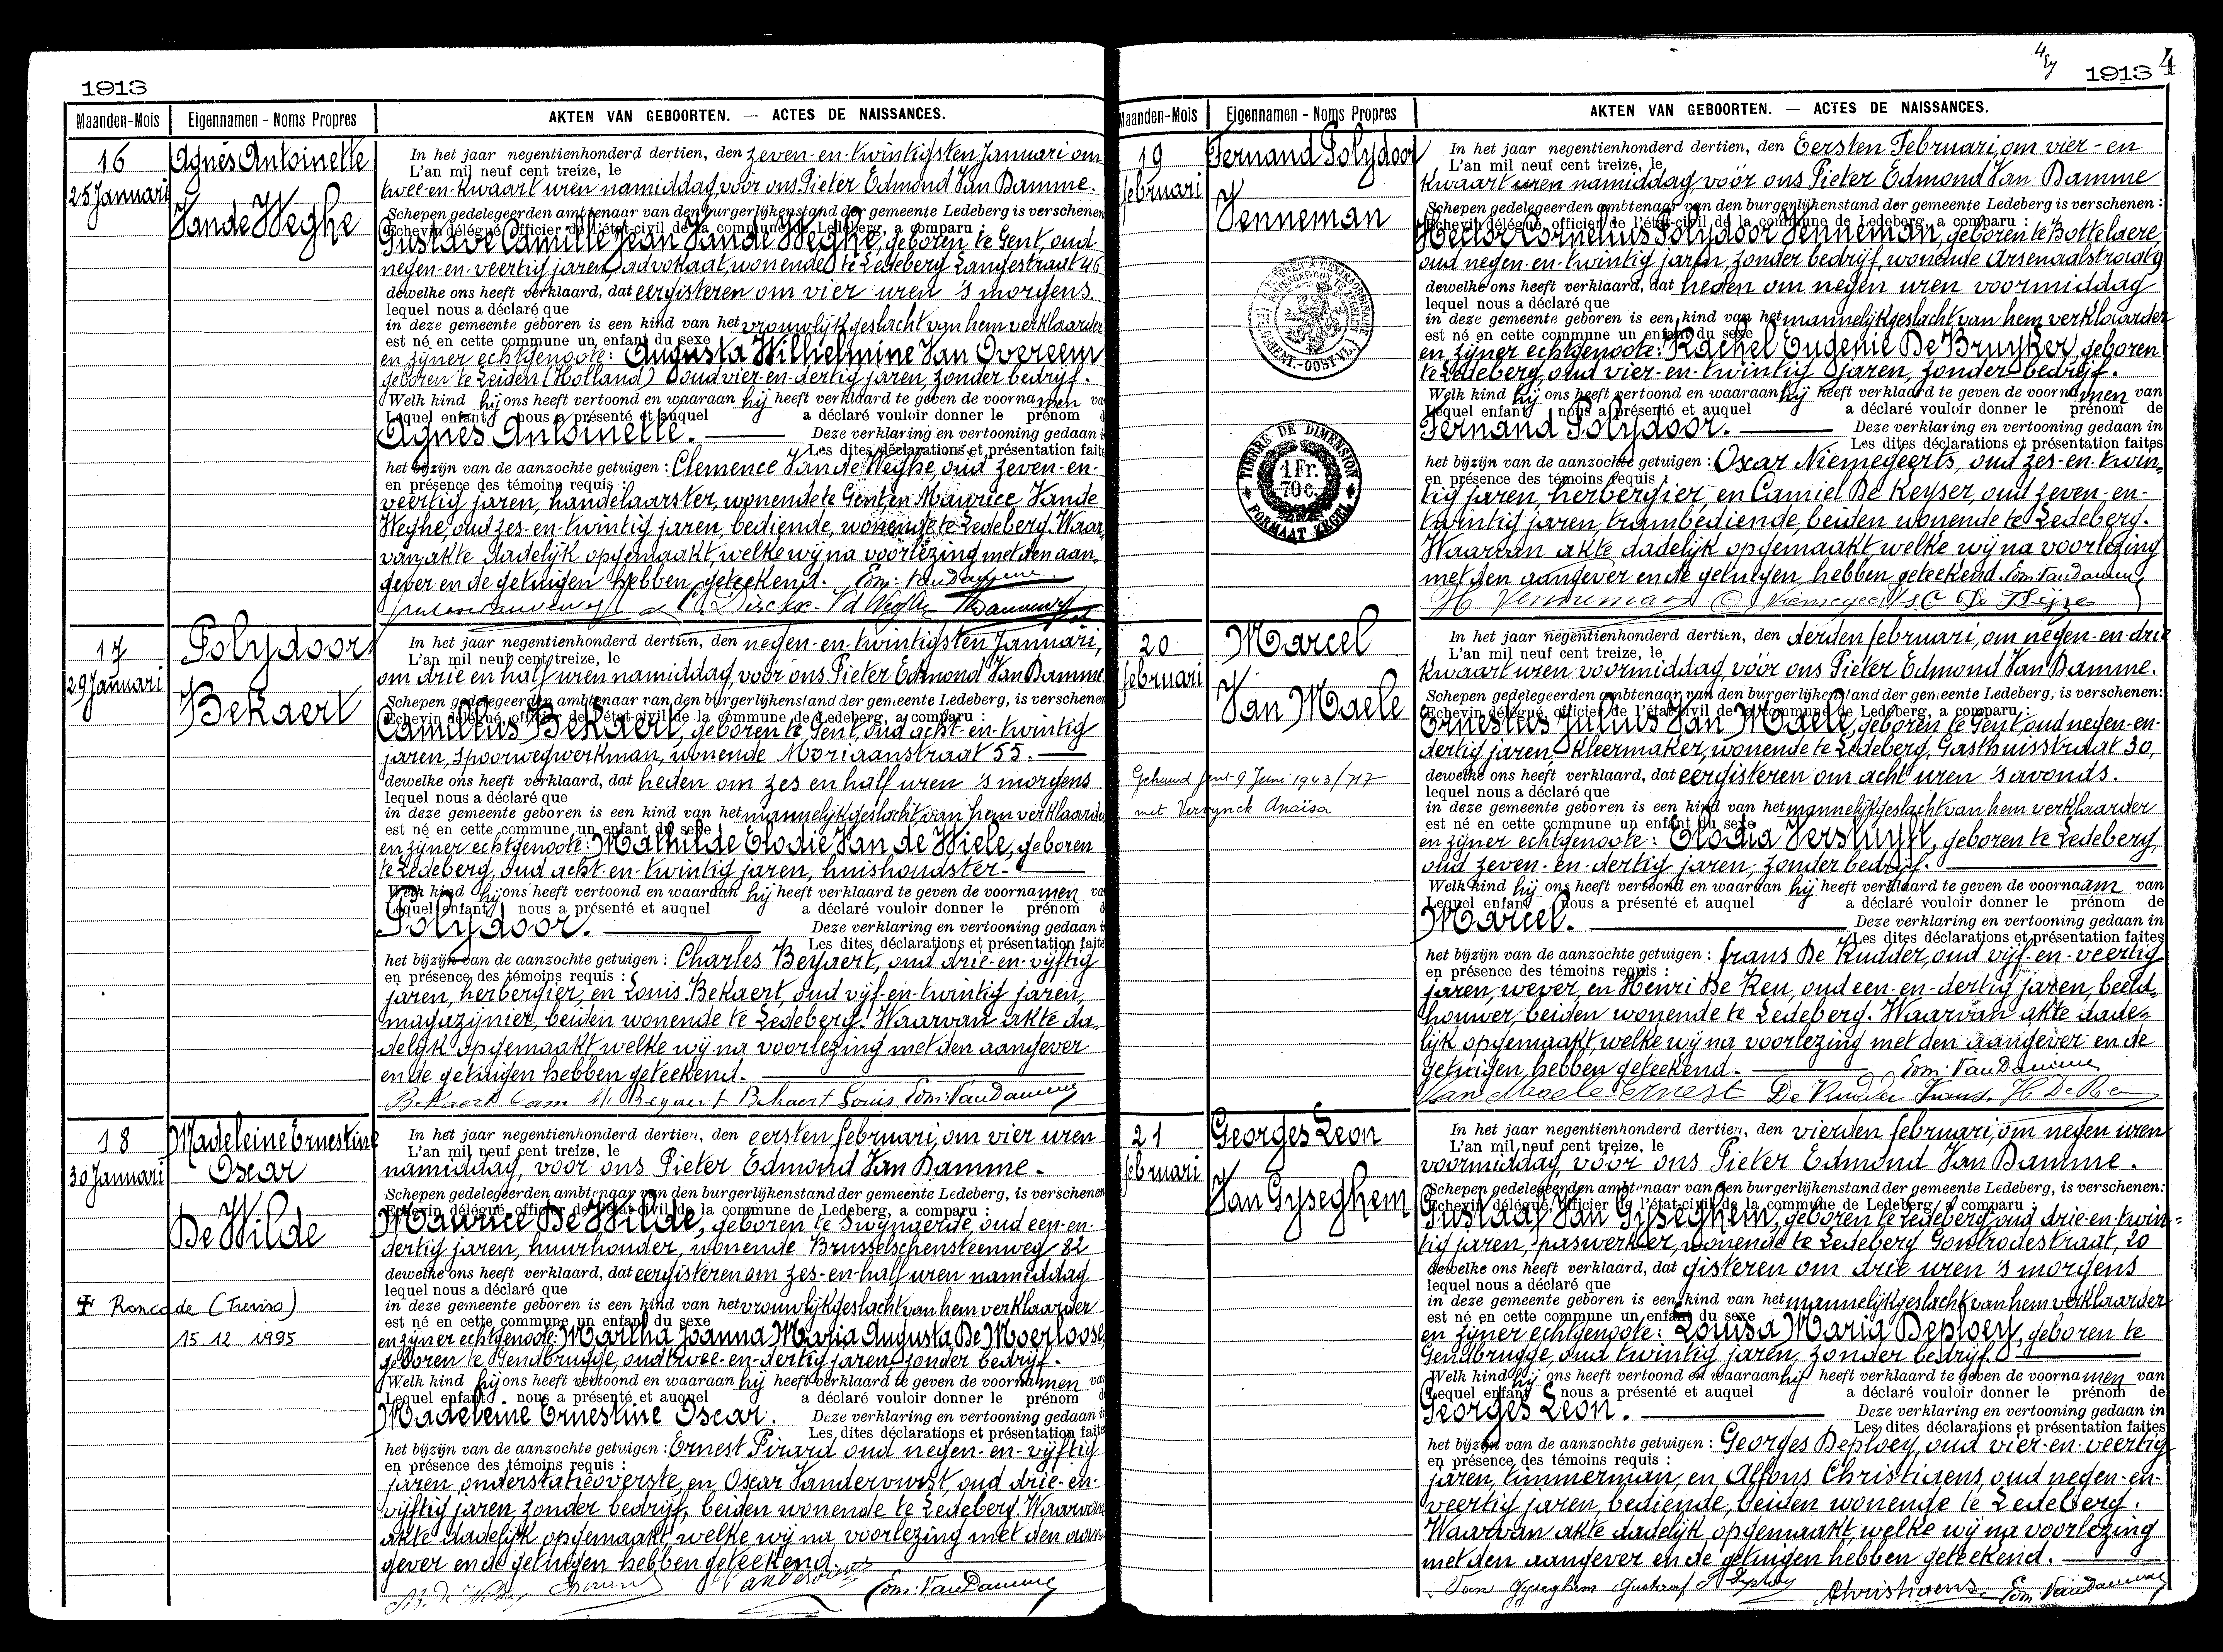 1913
Maanden-Mois
Eigennamen - Noms Propres
AKTEN VAN GEBOORTEN. — ACTES DE NAISSANCES.
16
25 Januari
Agnès Antoinette
Vande Weghe
In het jaar negentienhonderd dertien, den zeven-en-twintigsten Januari om
L'an mil neuf cent treize, le
twee-en-kwaart uren namiddag, voor ons Pieter Edmond Van Damme.
Schepen gedelegeerden ambtenaar van den burgerlijkenstand der gemeente Ledeberg is verschenen
Echevin délégué officier de l'état-civil de la commune de Ledeberg, a comparu :
Gustave Camille Jean Vande Weghe, geboren te Gent, oud
negen-en-veertig jaren, advokaat, wonende te Ledeberg Langestraat 46
dewelke ons heeft verklaard, dat eergisteren om vier uren 's morgens.
lequel nous a déclaré que
in deze gemeente geboren is een kind van het vrouwlijk geslacht van hem verklaarder
est né en cette commune un enfant du sexe
en zijner echtgenoote: Augusta Wilhelmine Van Overeem
geboren te Leiden (Holland) oud vier-en-dertig jaren, zonder bedrijf.
Welk kind hij ons heeft vertoond en waaraan hij heeft verklaard te geven de voornamen va
Lequel enfant nous a présenté et auquel a déclaré vouloir donner le prénom d
Agnès Antoinette. Deze verklaring en vertooning gedaan i
Les dites déclarations et présentation faite
het bijzijn van de aanzochte getuigen : Clemence Van de Weghe, oud zeven-en-
en présence des témoins requis :
veertig jaren, handelaarster, wonende te Gent en Maurice Vande
Weghe, oud zes-en-twintig jaren, bediende, wonende te Ledeberg. Waar
van akte dadelijk opgemaakt, welke wij na voorlezing met den aan
gever en de getuigen hebben geteekend. Edm. Van Damme
17
29 Januari
Polydoor
Bekaert
In het jaar negentienhonderd dertien, den negen-en-twintigsten Januari,
L'an mil neuf cent treize, le
om drie en half uren namiddag, voor ons Pieter Edmond Van Damme
Schepen gedelegeerden ambtenaar van den burgerlijkenstand der gemeente Ledeberg, is verschenen
Echevin délégué, officier de l'état-civil de la commune de Ledeberg, a comparu :
Camillus Bekaert, geboren te Gent, oud acht-en-twintig
jaren, spoorwegwerkman, wonende Moriaanstraat 55.
dewelke ons heeft verklaard, dat heden om zes en half uren 's morgens
lequel nous a déclaré que
in deze gemeente geboren is een kind van het mannelijk geslacht van hem verklaarder
est né en cette commune un enfant du sexe
en zijner echtgenoote: Mathilde Elodie Van de Wiele, geboren
te Ledeberg, oud acht-en-twintig jaren, huishoudster.
Welk kind hij ons heeft vertoond en waaraan hij heeft verklaard te geven de voornamen va
Lequel enfant nous a présenté et auquel a déclaré vouloir donner le prénom d
Polydoor. Deze verklaring en vertooning gedaan i
Les dites déclarations et présentation faite
het bijzijn van de aanzochte getuigen : Charles Beyaert, oud drie-en-vijftig
en présence des témoins requis :
jaren, herbergier, en Louis Bekaert, oud vijf-en-twintig jaren,
magazijnier, beiden wonende te Ledeberg. Waarvan akte da
delijk opgemaakt welke wij na voorlezing met den aangever
en de getuigen hebben geteekend.
Bekaert Cam Beyaert Bekaert Louis Edm. Van Damme
18
30 Januari
Madeleine Ernestine
Oscar
De Wilde
✝ Roncade (Treviso)
15.12.1995
In het jaar negentienhonderd dertien, den eersten februari, om vier uren
L'an mil neuf cent treize, le
namiddag, voor ons Pieter Edmond Van Damme.
Schepen gedelegeerden ambtenaar van den burgerlijkenstand der gemeente Ledeberg, is verschenen
Echevin délégué, officier de l'état-civil de la commune de Ledeberg, a comparu :
Maurice De Wilde, geboren te Swynaerde, oud een-en-
dertig jaren, huurhouder, wonende Brusselschensteenweg 82
dewelke ons heeft verklaard, dat eergisteren om zes-en-half uren namiddag
lequel nous a déclaré que
in deze gemeente geboren is een kind van het vrouwlijk geslacht van hem verklaarder
est né en cette commune un enfant du sexe
en zijner echtgenoote: Martha Joanna Maria Augusta De Moerloose,
geboren te Gendbrugge, oud twee-en-dertig jaren, zonder bedrijf.
Welk kind hij ons heeft vertoond en waaraan hij heeft verklaard te geven de voornamen va
Lequel enfant nous a présenté et auquel a déclaré vouloir donner le prénom d
Madeleine Ernestine Oscar. Deze verklaring en vertooning gedaan i
Les dites déclarations et présentation faite
het bijzijn van de aanzochte getuigen : Ernest Pirard oud negen-en-vijftig
en présence des témoins requis :
jaren, onderstatieoverste, en Oscar Vandervorst, oud drie-en-
vijftig jaren, zonder bedrijf, beiden wonende te Ledeberg. Waarvan
akte dadelijk opgemaakt welke wij na voorlezing met den aan
gever en de getuigen hebben geteekend.
Edm. Van Damme
1913 4
Maanden-Mois
Eigennamen - Noms Propres
AKTEN VAN GEBOORTEN. — ACTES DE NAISSANCES.
19
februari
Fernand Polydoor
Venneman
TIMBRE DE DIMENSION
1 Fr.
70 c.
FORMAAT ZEGEL
In het jaar negentienhonderd dertien, den Eersten Februari, om vier-en
L'an mil neuf cent treize, le
kwaart uren namiddag, voor ons Pieter Edmond Van Damme
Schepen gedelegeerden ambtenaar van den burgerlijkenstand der gemeente Ledeberg is verschenen :
Echevin délégué, officier de l'état-civil de la commune de Ledeberg, a comparu :
Hector Cornelius Polydoor Venneman, geboren te Bottelaere,
oud negen-en-twintig jaren, zonder bedrijf, wonende Arsenaalstraat 9
dewelke ons heeft verklaard, dat heden om negen uren voormiddag
lequel nous a déclaré que
in deze gemeente geboren is een kind van het mannelijk geslacht van hem verklaarder
est né en cette commune un enfant du sexe
en zijner echtgenoote: Rachel Eugenie De Bruyker, geboren
te Ledeberg, oud vier-en-twintig jaren, zonder bedrijf.
Welk kind hij ons heeft vertoond en waaraan hij heeft verklaard te geven de voornamen van
Lequel enfant nous a présenté et auquel a déclaré vouloir donner le prénom de
Fernand Polydoor. Deze verklaring en vertooning gedaan in
Les dites déclarations et présentation faites
het bijzijn van de aanzochte getuigen : Oscar Niemegeerts, oud zes-en-twin
en présence des témoins requis :
tig jaren, herbergier, en Camiel De Keyser, oud zeven-en-
twintig jaren, trambediende, beiden wonende te Ledeberg.
Waarvan akte dadelijk opgemaakt, welke wij na voorlezing
met den aangever en de getuigen hebben geteekend. Edm. Van Damme
H Venneman
20
februari
Marcel
Van Maele
Gehuwd Gent 9 Juni 1943/717
met Anaïsa
In het jaar negentienhonderd dertien, den derden februari, om negen-en-drie
L'an mil neuf cent treize, le
kwaart uren voormiddag, vóór ons Pieter Edmond Van Damme.
Schepen gedelegeerden ambtenaar van den burgerlijkenstand der gemeente Ledeberg, is verschenen:
Echevin délégué, officier de l'état-civil de la commune de Ledeberg, a comparu :
Ernestus Julius Van Maele, geboren te Gent, oud negen-en-
dertig jaren, kleermaker, wonende te Ledeberg, Gasthuisstraat 30,
dewelke ons heeft verklaard, dat eergisteren om acht uren 's avonds.
lequel nous a déclaré que
in deze gemeente geboren is een kind van het mannelijk geslacht van hem verklaarder
est né en cette commune un enfant du sexe
en zijner echtgenoote: Elodia Versluyft, geboren te Ledeberg,
oud zeven-en-dertig jaren, zonder bedrijf.
Welk kind hij ons heeft vertoond en waaraan hij heeft verklaard te geven de voornaam van
Lequel enfant nous a présenté et auquel a déclaré vouloir donner le prénom de
Marcel. Deze verklaring en vertooning gedaan in
Les dites déclarations et présentation faites
het bijzijn van de aanzochte getuigen : frans De Rudder, oud vijf-en-veertig
en présence des témoins requis :
jaren, wever, en Henri De Reu, oud een-en-dertig jaren, beeld
houwer, beiden wonende te Ledeberg. Waarvan akte dade
lijk opgemaakt, welke wij na voorlezing met den aangever en de
getuigen hebben geteekend. Edm. Van Damme
Van Maele Ernest De Rudder Frans. H De Reu
21
februari
Georges Leon
Van Gyseghem
In het jaar negentienhonderd dertien, den vierden februari, om negen uren
L'an mil neuf cent treize, le
voormiddag, vóór ons Pieter Edmond Van Damme.
Schepen gedelegeerden ambtenaar van den burgerlijkenstand der gemeente Ledeberg, is verschenen:
Echevin délégué, officier de l'état-civil de la commune de Ledeberg, a comparu :
Gustaaf Van Gyseghem, geboren te Ledeberg, oud drie-en-twin
tig jaren, paswerker, wonende te Ledeberg Gontrodestraat, 20
dewelke ons heeft verklaard, dat gisteren om drie uren 's morgens
lequel nous a déclaré que
in deze gemeente geboren is een kind van het mannelijk geslacht van hem verklaarder
est né en cette commune un enfant du sexe
en zijner echtgenoote: Louisa Maria Deploey, geboren te
Gendbrugge, oud twintig jaren, zonder bedrijf.
Welk kind hij ons heeft vertoond en waaraan hij heeft verklaard te geven de voornamen van
Lequel enfant nous a présenté et auquel a déclaré vouloir donner le prénom de
Georges Leon. Deze verklaring en vertooning gedaan in
Les dites déclarations et présentation faites
het bijzijn van de aanzochte getuigen : Georges Deploey, oud vier-en-veertig
en présence des témoins requis :
jaren, timmerman, en Alfons Christiaens, oud negen-en-
veertig jaren, bediende, beiden wonende te Ledeberg.
Waarvan akte dadelijk opgemaakt, welke wij na voorlezing
met den aangever en de getuigen hebben geteekend.
Van Gyseghem Gustaaf Christiaens Edm. Van Damme